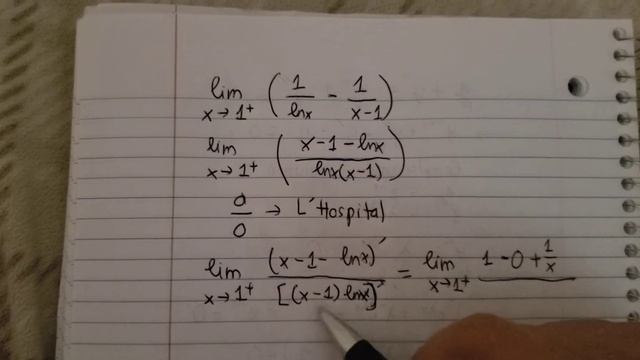 lim x→1⁺ (1/lnx - 1/x-1)
lim x→1⁺ (x-1-lnx / lnx(x-1))
0/0 → L'Hospital
lim x→1⁺ (x-1-lnx)' / [(x-1)lnx]' = lim x→1⁺ 1-0+1/x